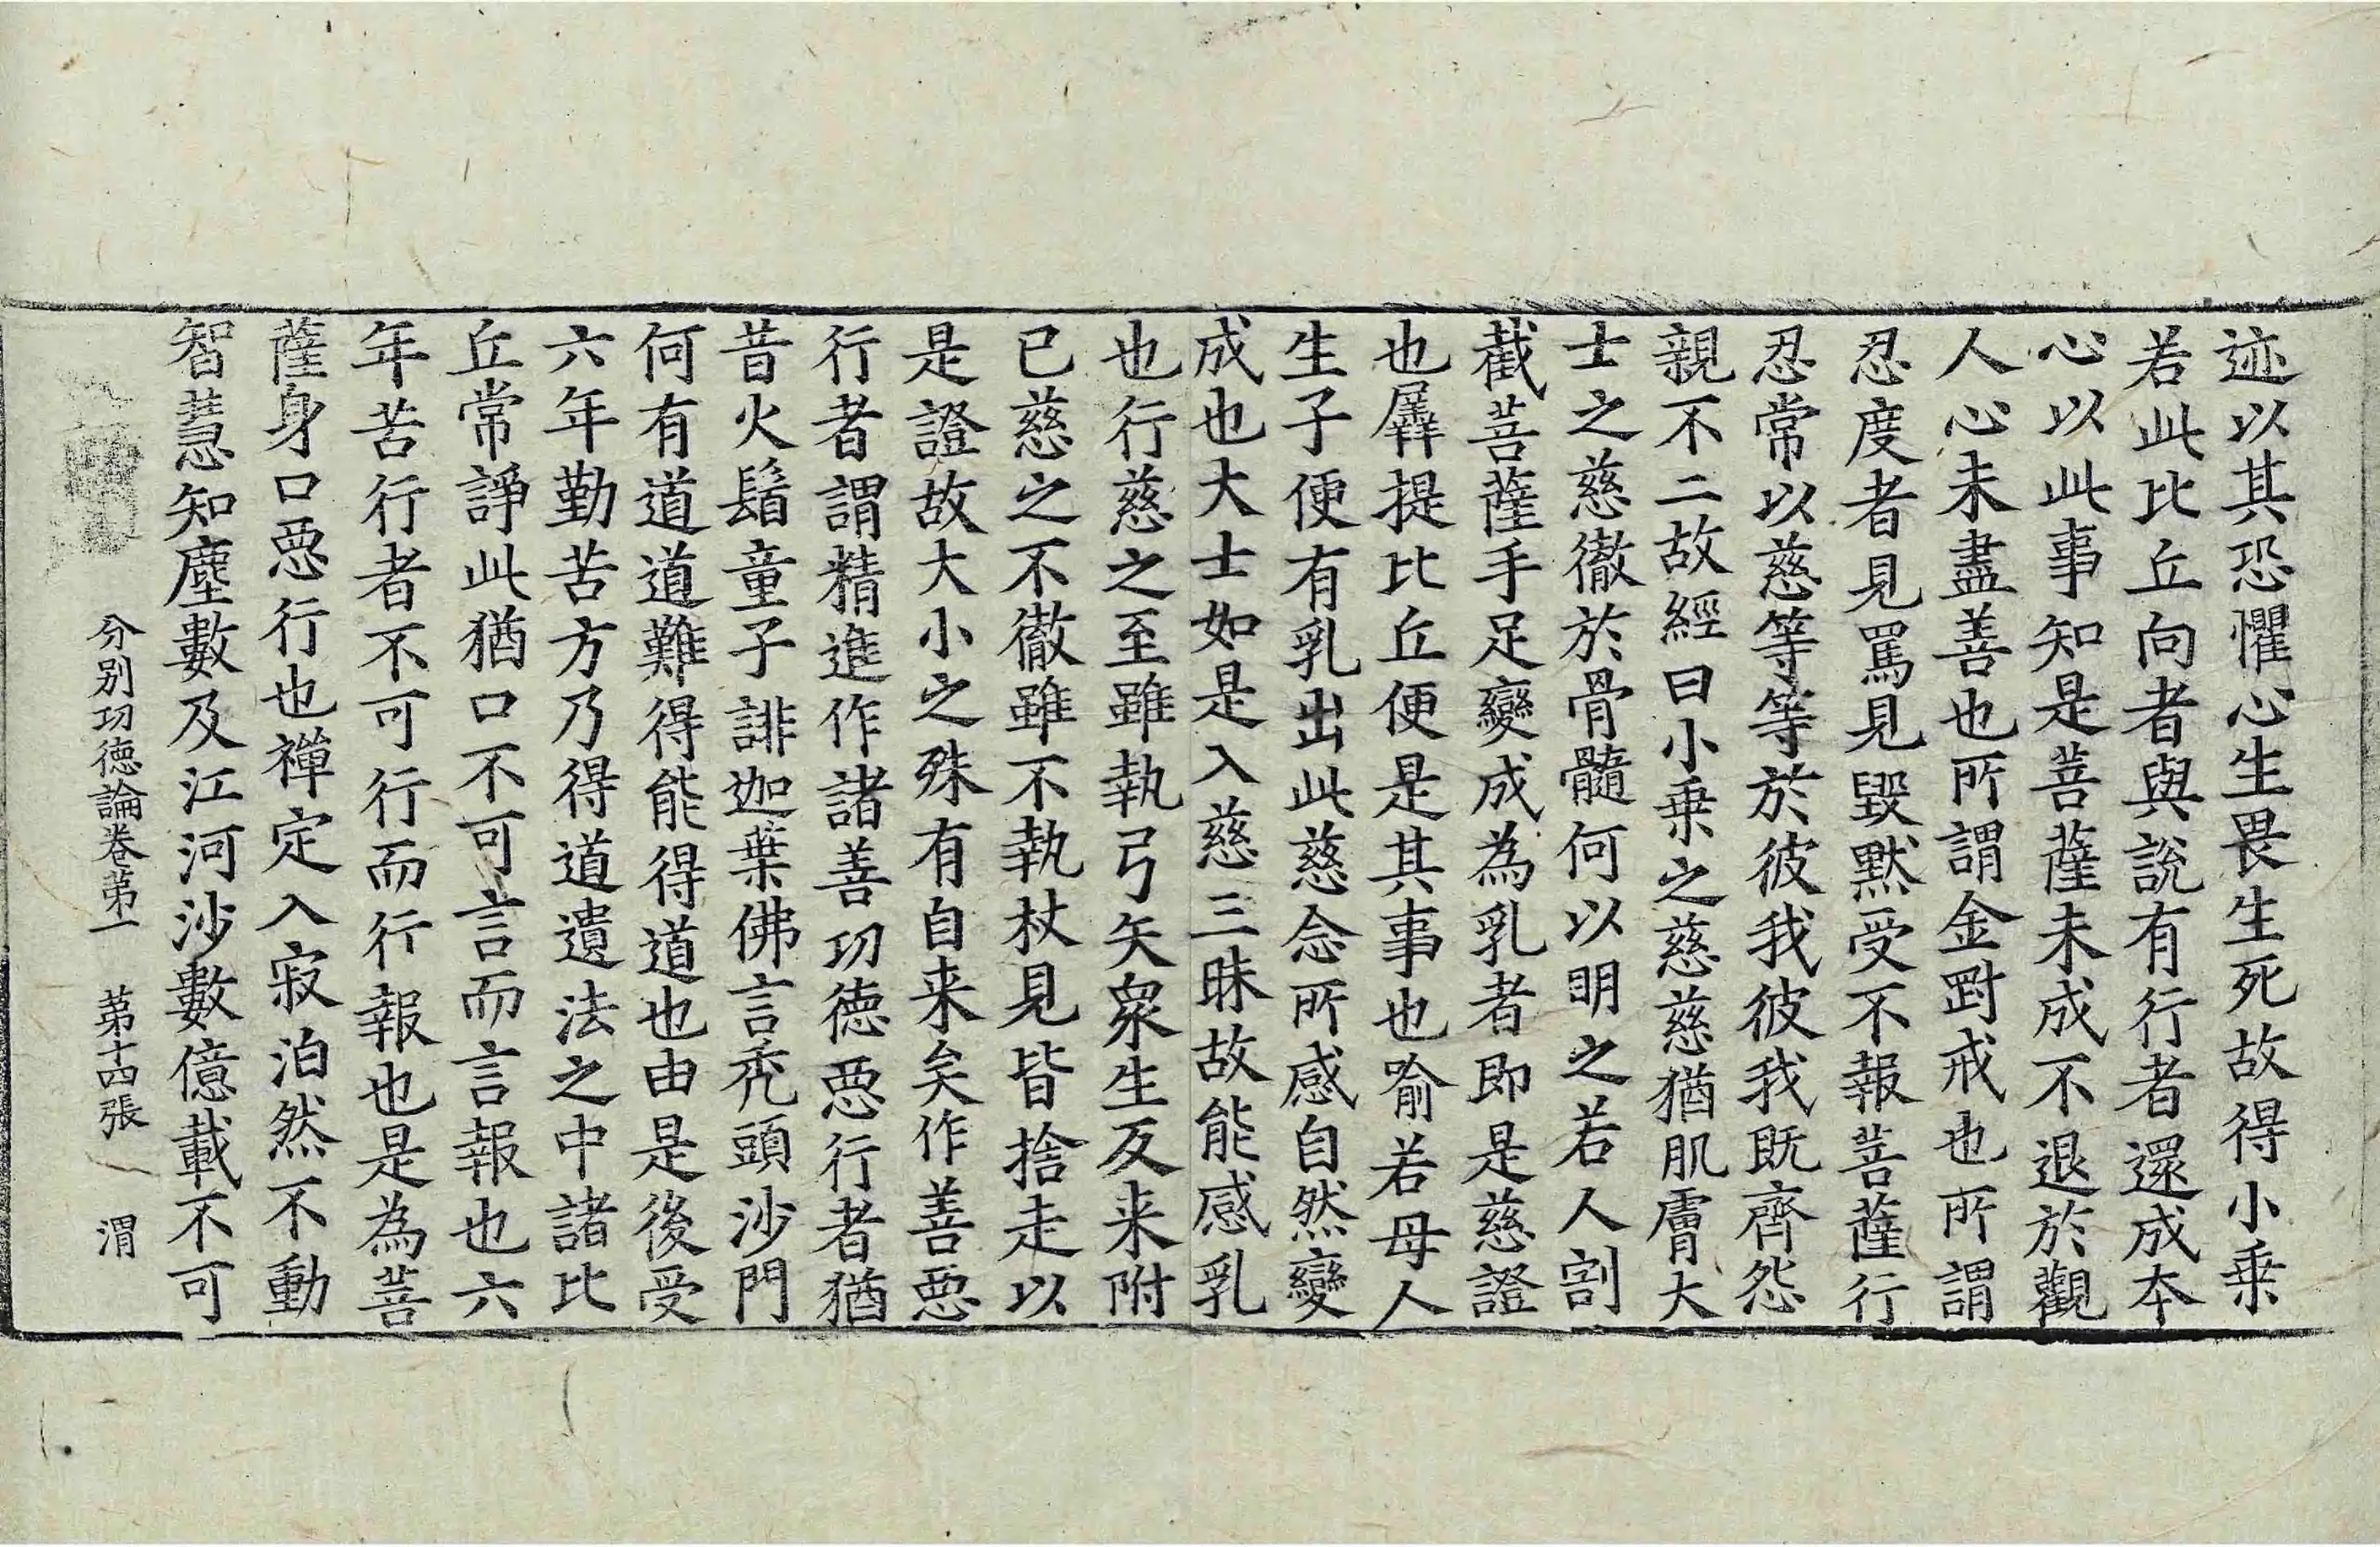 迹以其恐懼心生畏生死故得小乗
若此比丘向者與説有行者還成本
心以此事知是菩薩未成不退於觀
人心未盡善也所謂金對戒也所謂
忍度者見罵見毀默受不報菩薩行
忍常以慈等等於彼我彼我既齊怨
親不二故經曰小乗之慈慈猶肌膚大
士之慈徹於骨髓何以明之若人割
截菩薩手足變成為乳者即是慈證
也羼提比丘便是其事也喻若母人
生子便有乳出此慈念所感自然變
成也大士如是入慈三昧故能感乳
也行慈之至雖執弓矢衆生反来附
已慈之不徹雖不執杖見皆捨走以
是證故大小之殊有自来矣作善惡
行者謂精進作諸善功德惡行者猶
昔火鬘童子誹迦葉佛言秃頭沙門
何有道道難得能得道也由是後受
六年勤苦方乃得道遺法之中諸比
丘常諍此猶口不可言而言報也六
年苦行者不可行而行報也是為菩
薩身口惡行也禪定入寂泊然不動
智慧知塵數及江河沙數億載不可
分別功德論卷第一　第十四張　渭